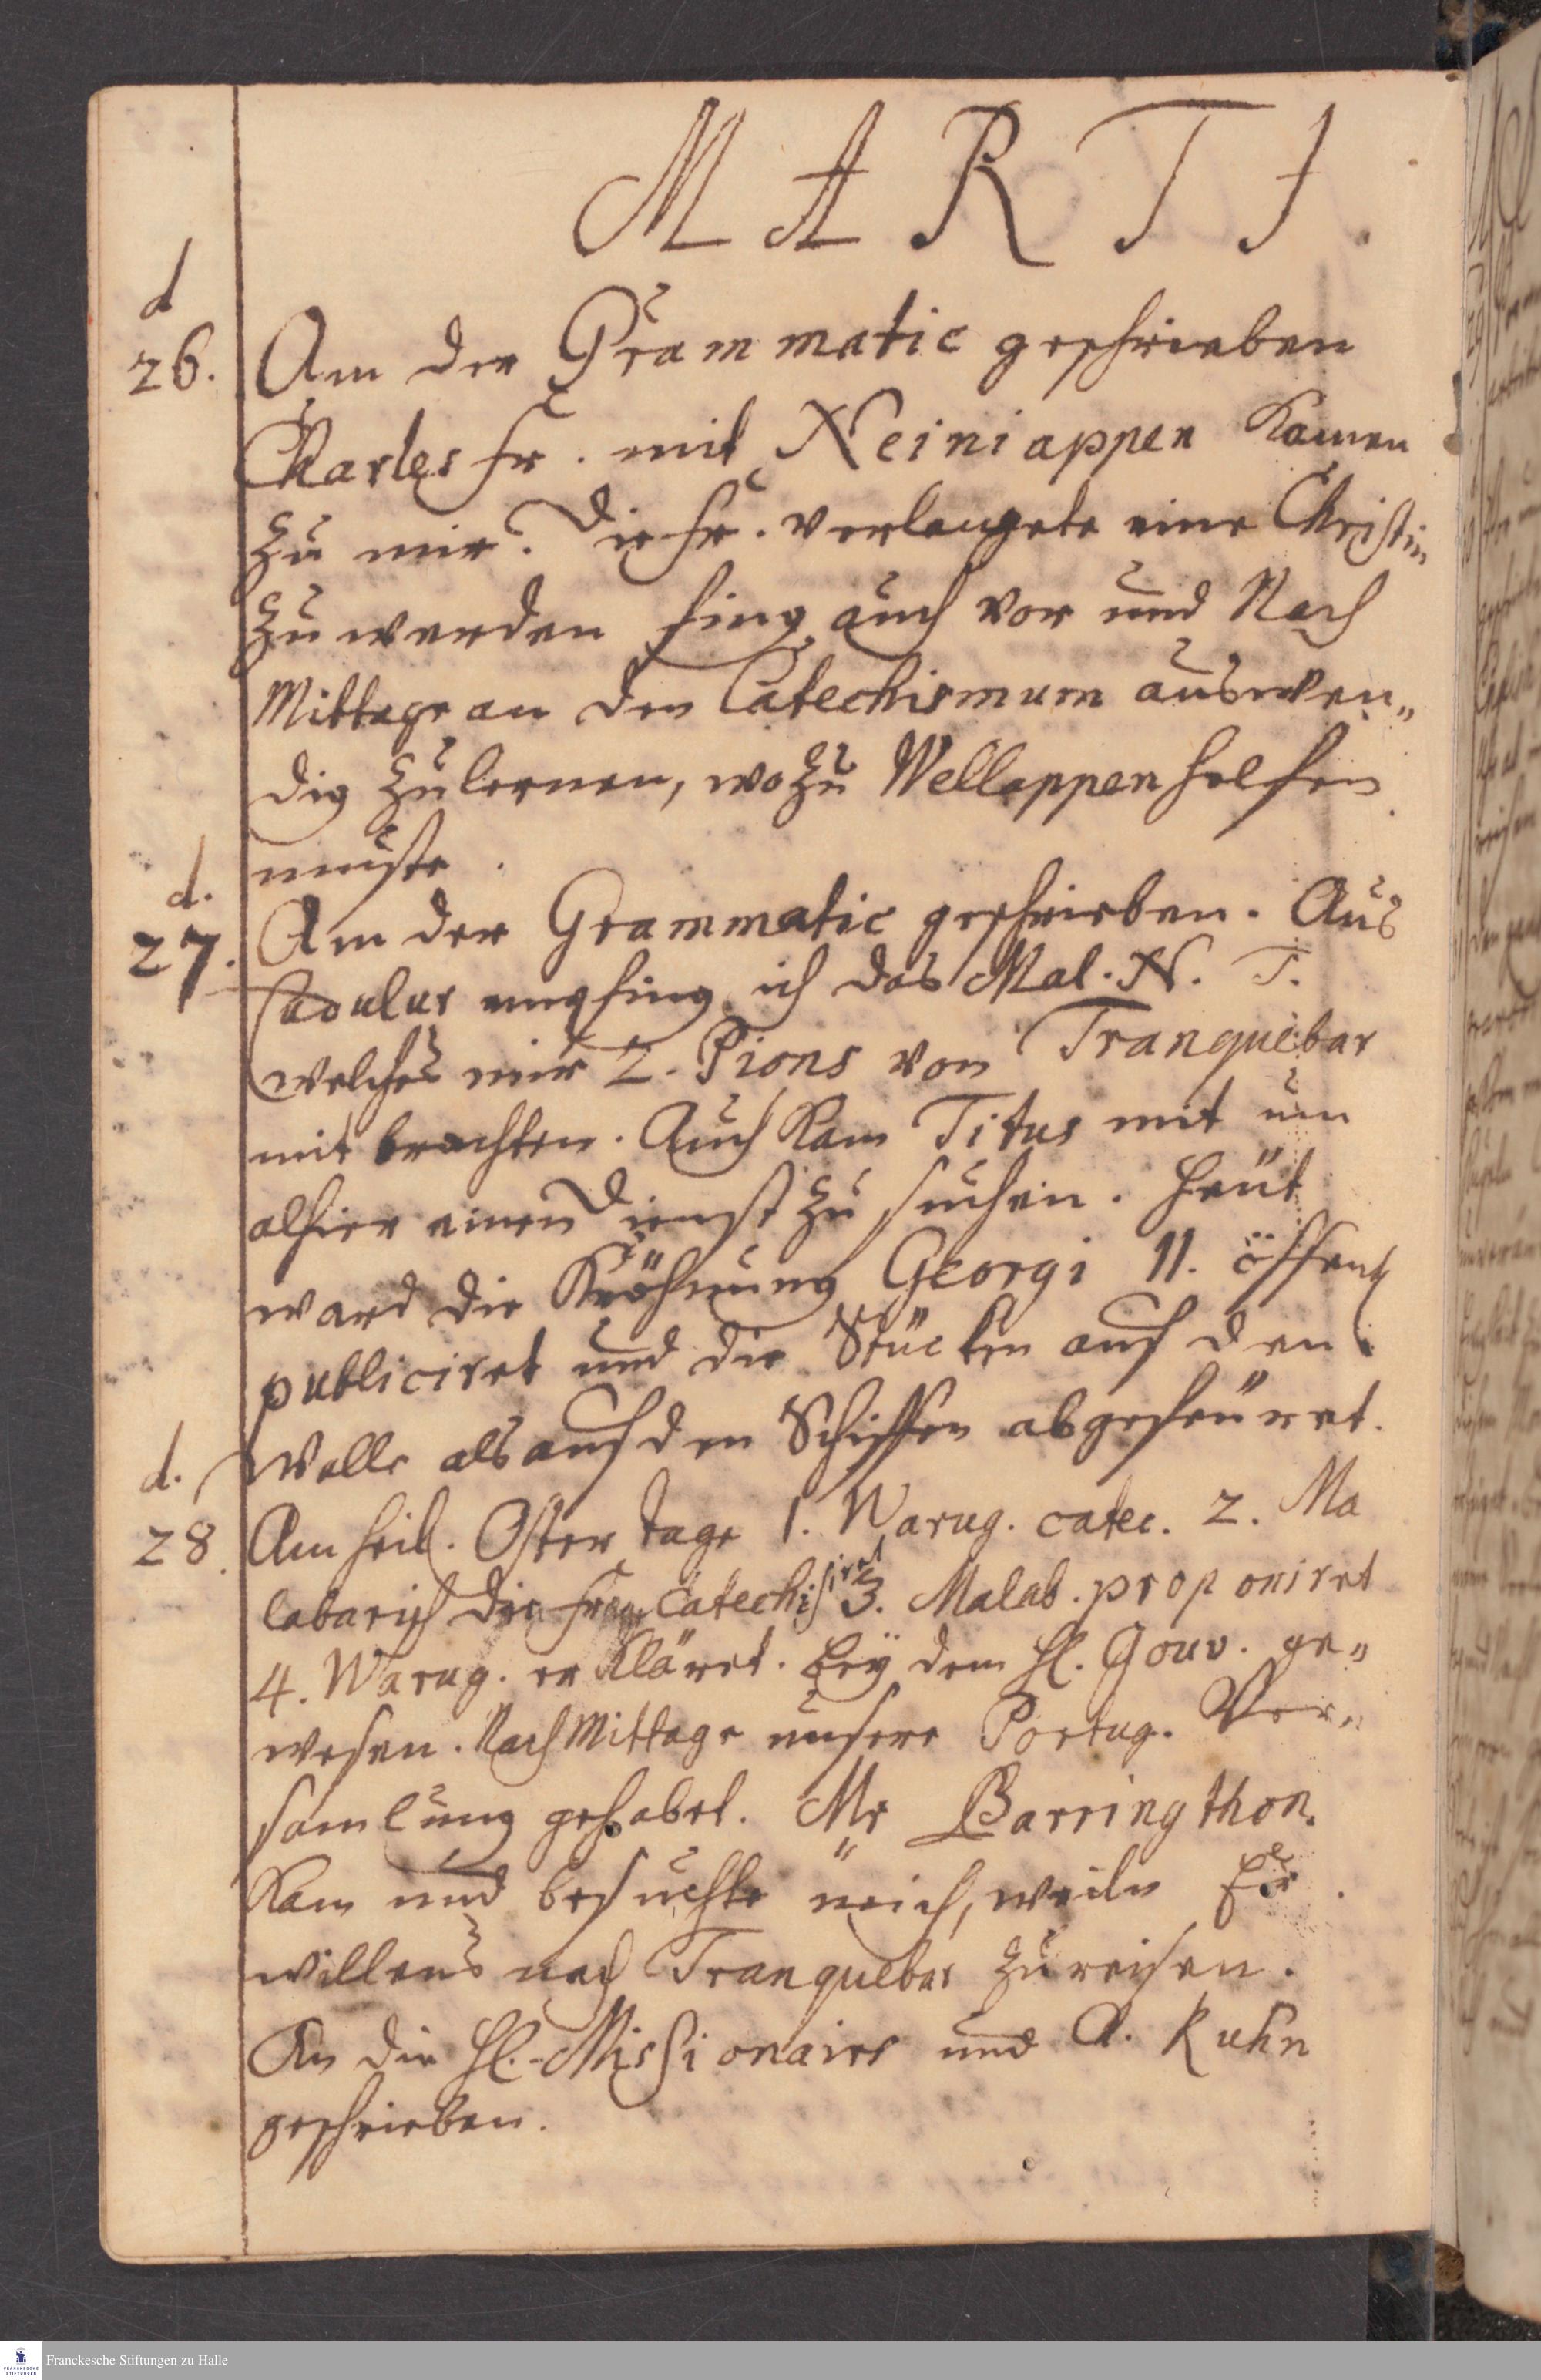 MARTI.
d
26. Am der Grammatic geschrieben
Charles Fr. mit Neiniappen kamen
zu mir. Die Fr. verlangete eine Christin
zu werden fing auch vor und Nach
Mittage an den Catechismum auswen„
dig zu lernen, wozu Wellappen helfen
muste.
d.
27. Am der Grammatic geschrieben. Aus
Cadulur empfing ich das Mal. N. T.
welches mir 2. Pions von Tranquebar
mit brachten. Auch kam Titus mit um
alhier einen Dienst zu suchen. Heüt
ward die Kröhnung Georgi II. öffentl
publiciret und die Stücken auf den
Walle als auf den Schiffen abgefeüret.
d.
28. Am heil. Oster tage 1. Warug. catec. 2. Ma
labarisch die Catechisiret 3. Malab. proponiret
4. Warug. erkläret. bey dem H. Gouv. ge„
wesen. Nach Mittage unsere Portug. Ver„
samlung gehabet. Mr Barringthon.
kam und besuchte mich, weiln Er
willens nach Tranquebar zu reisen.
An die H. Missionairs und A. Kuhn
geschrieben.
Franckesche Stiftungen zu Halle